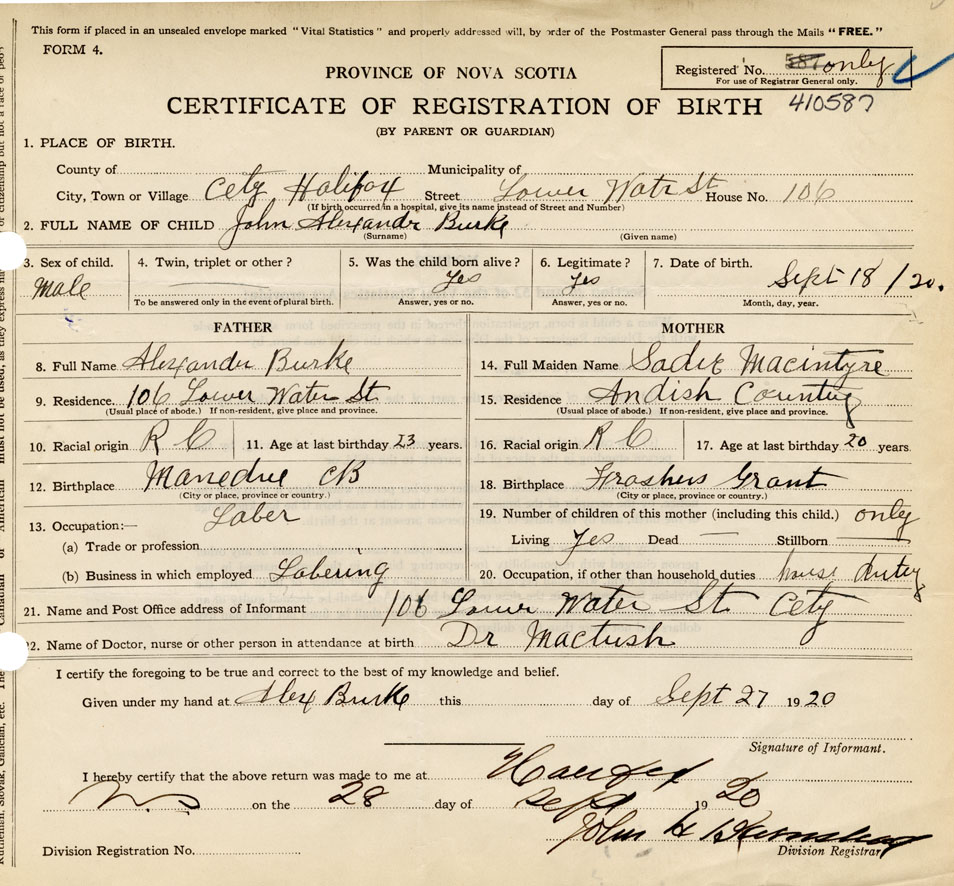 This form if placed in an unsealed envelope marked "Vital Statistics" and properly addressed will, by order of the Postmaster General pass through the Mails "FREE."
FORM 4.
Registered No. 587 only
For use of Registrar General only.
PROVINCE OF NOVA SCOTIA
CERTIFICATE OF REGISTRATION OF BIRTH 410587
(BY PARENT OR GUARDIAN)
1. PLACE OF BIRTH.
County of Municipality of
City, Town or Village Cety Halifax Street Lower Watr St House No. 106
(If birth occurred in a hospital, give its name instead of Street and Number)
2. FULL NAME OF CHILD John Alexander Burke
(Surname) (Given name)
3. Sex of child. 4. Twin, triplet or other? 5. Was the child born alive? 6. Legitimate? 7. Date of birth.
Male Yes Yes Sept 18 / 20.
To be answered only in the event of plural birth. Answer, yes or no. Answer, yes or no. Month, day, year.
FATHER MOTHER
8. Full Name Alexander Burke 14. Full Maiden Name Sadie Macintyre
9. Residence. 106 Lower Water St 15. Residence Andish Country
(Usual place of abode.) If non-resident, give place and province. (Usual place of abode.) If non-resident, give place and province.
10. Racial origin R C 11. Age at last birthday 23 years. 16. Racial origin R C 17. Age at last birthday 20 years.
12. Birthplace CB 18. Birthplace Grant
(City or place, province or country.) (City or place, province or country.)
13. Occupation:— Laber 19. Number of children of this mother (including this child.) only
(a) Trade or profession Living Yes Dead — Stillborn
(b) Business in which employed Labering 20. Occupation, if other than household duties house dutey
21. Name and Post Office address of Informant 106 Lower Water St Cety
22. Name of Doctor, nurse or other person in attendance at birth Dr Mactush
I certify the foregoing to be true and correct to the best of my knowledge and belief.
Given under my hand at Alex Burke this day of Sept 27 1920
Signature of Informant.
I hereby certify that the above return was made to me at
N.S on the 28 day of Sept 1920
John H
Division Registration No. Division Registrar